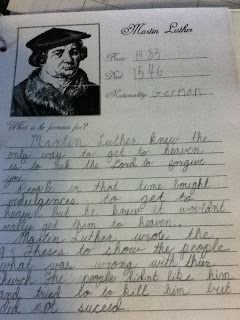 Martin Luther
Born 1483
Died 1546
Nationality German
What is he famous for?
Martin Luther knew the
only way to get to heaven
is to ask the Lord to forgive
you.
People in that time bought
indulgences to get to
heaven but he knew it wouldnt
really get them to heaven.
Martin Luther wrote the
95 Theses to show the people
what was wrong with their
church. The people didnt like him
and tried to to kill him but
did not suceed.